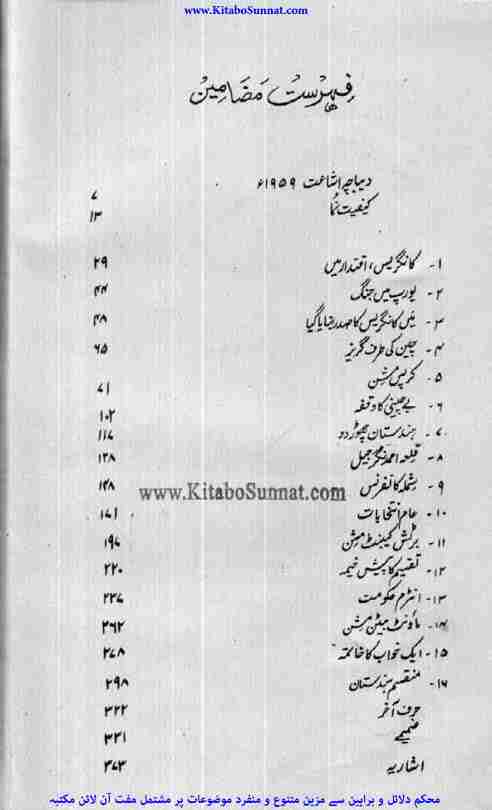 www.KitaboSunnat.com
فہرست مضامین
دیباچہ اشاعت ۱۹۵۹ء ۷
کیفیت نما ۱۳
۱- کانگریس، اقتدار میں ۲۹
۲- یورپ میں جنگ ۴۴
۳- میں کانگریس کا صدر بنایا گیا ۴۸
۴- چین کی طرف گریز ۶۵
۵- کرپس مشن ۷۱
۶- بے چینی کا وقفہ ۱۰۲
۷- ہندستان چھوڑ دو ۱۱۷
۸- قلعہ احمد نگر جیل ۱۲۸
۹- شملہ کانفرنس ۱۴۸
www.KitaboSunnat.com
۱۰- عام انتخابات ۱۷۱
۱۱- برٹش کیبنٹ مشن ۱۹۷
۱۲- تقسیم کا پیش خیمہ ۲۲۰
۱۳- انٹرم حکومت ۲۳۷
۱۴- ماؤنٹ بیٹن مشن ۲۶۲
۱۵- ایک خواب کا خاتمہ ۲۷۸
۱۶- منقسم ہندستان ۲۹۸
حرف آخر ۳۲۲
ضمیمے ۳۳۱
اشاریہ ۳۷۳
محکم دلائل و براہین سے مزین متنوع و منفرد موضوعات پر مشتمل مفت آن لائن مکتبہ